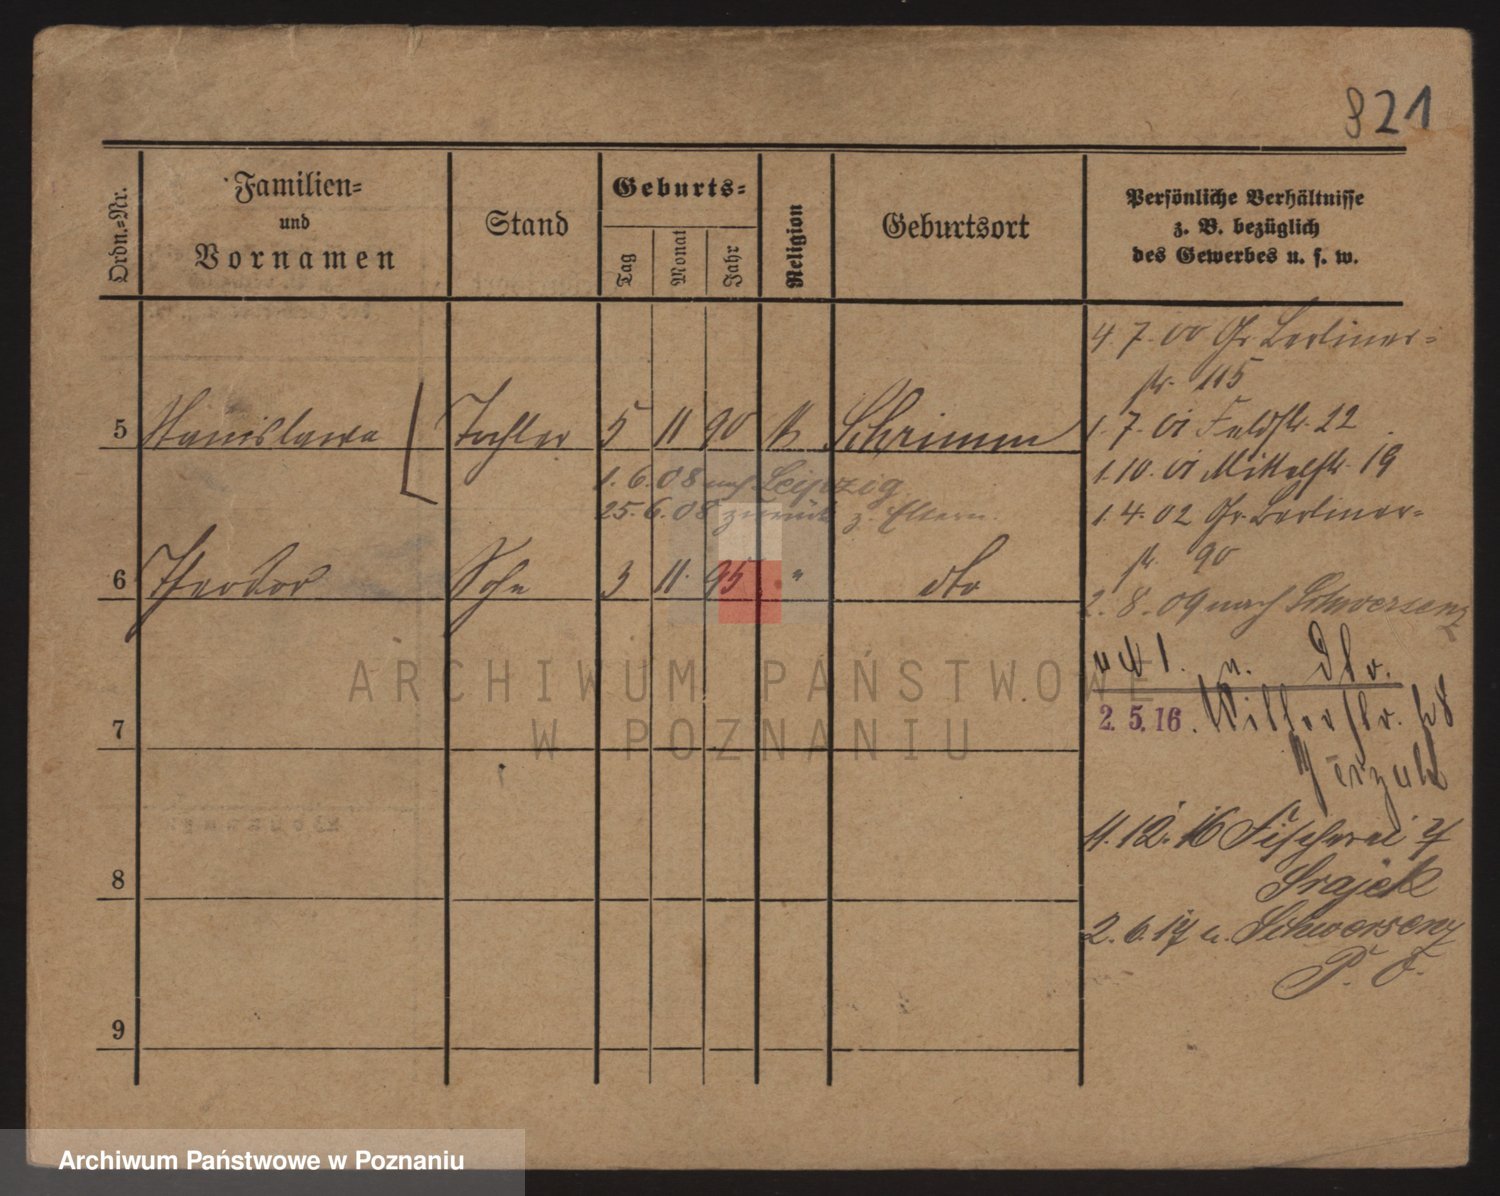 821
Ordn.-Nr.
Familien-
und
Vornamen
Stand
Geburts-
Tag
Monat
Jahr
Religion
Geburtsort
Persönliche Verhältnisse
z. B. bezüglich
des Gewerbes u. s. w.
4. 7. 00 Gr. Berliner-
str. 115
5 Stanislawa Tochter 5 11 90 k Schrimm
1. 7. 01 Feldstr. 22
1. 10. 01 Mittelstr. 19
1. 6. 08 nach Leipzig
25. 6. 08 zurück z. Eltern.
1. 4. 02 Gr. Berliner-
str. 90
6 Theodor Sohn 3 11. 95 " dto
2. 8. 09 nach Schwersenz
1. n. dto.
2. 5. 16.
ARCHIWUM PAŃSTWOWE
W POZNANIU
7
11. 12. 16 Fischerei
8
2. 6. 17 n. Schwersenz
P. O.
9
Archiwum Państwowe w Poznaniu